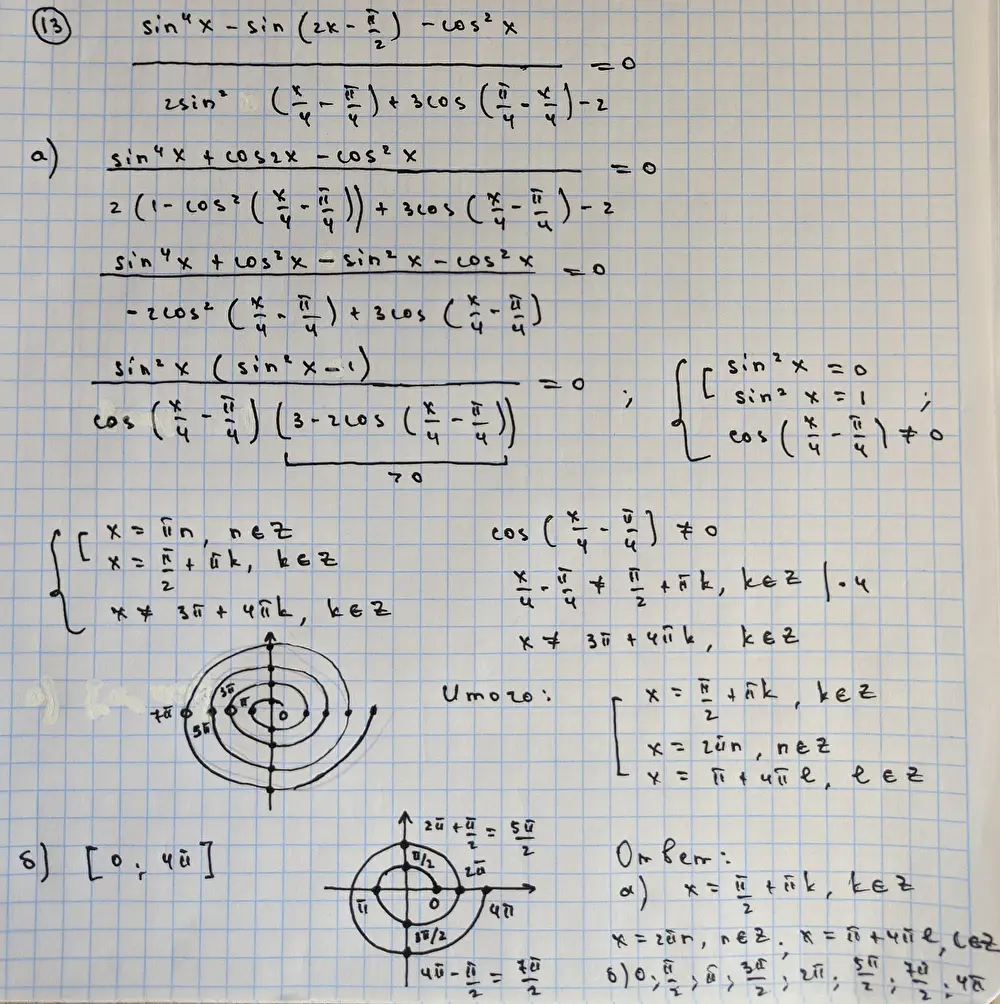 13
sin⁴x − sin(2x − π/2) − cos²x
= 0
2sin² (x/4 − π/4) + 3cos(π/4 − x/4) − 2
а) sin⁴x + cos2x − cos²x
= 0
2(1 − cos²(x/4 − π/4)) + 3cos(x/4 − π/4) − 2
sin⁴x + cos²x − sin²x − cos²x
= 0
−2cos²(x/4 − π/4) + 3cos(x/4 − π/4)
sin²x (sin²x − 1)
= 0 ;
cos(x/4 − π/4)(3 − 2cos(x/4 − π/4))
> 0
{ [ sin²x = 0
sin²x = 1 ;
cos(x/4 − π/4) ≠ 0
{ [ x = πn, n∈Z
x = π/2 + πk, k∈Z
x ≠ 3π + 4πk, k∈Z
cos(x/4 − π/4) ≠ 0
x/4 − π/4 ≠ π/2 + πk, k∈Z | · 4
x ≠ 3π + 4πk, k∈Z
7π 5π 3π π 0
Итого: [ x = π/2 + πk, k∈Z
x = 2πn, n∈Z
x = π + 4πl, l∈Z
б) [0; 4π]
2π + π/2 = 5π/2
π/2 2π
π 0 4π
3π/2
4π − π/2 = 7π/2
Ответ:
а) x = π/2 + πk, k∈Z
x = 2πn, n∈Z, x = π + 4πl, l∈Z
б) 0; π/2; π; 3π/2; 2π; 5π/2; 7π/2; 4π